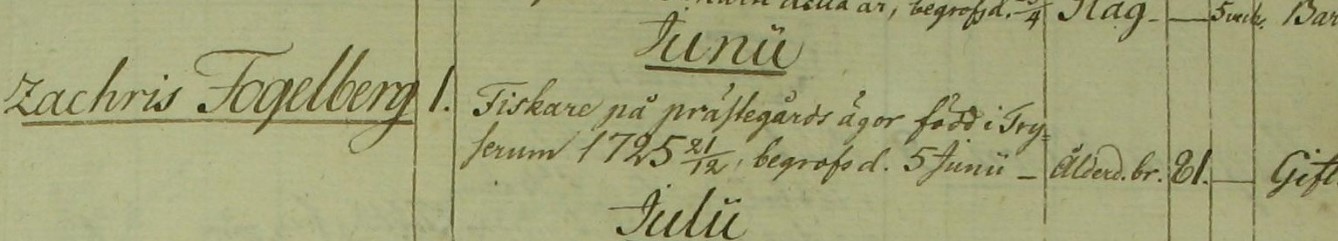 detta år, begrofs d. /4 Slag. — 5 veck. Bar
Junii
Zachris Fogelberg 1. Fiskare på prästegårds ägor född i Try=
serum 1725 21/12, begrofs d. 5 Junii – Ålderd. br. 81. — Gift
Julii